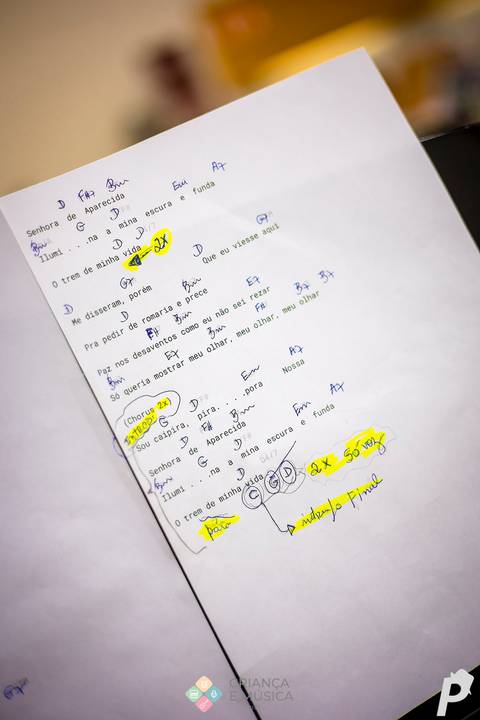 D F#7 Bm Em A7
Senhora de Aparecida
Bm G D
Ilumi ...na a mina escura e funda
D D
O trem de minha vida 2X
G7 D G7
Me disseram, porém Que eu viesse aqui
D Bm
Pra pedir de romaria e prece
F# Bm E7
Paz nos desaventos como eu não sei rezar
E7 Bm F# B7 B7
Só queria mostrar meu olhar, meu olhar, meu olhar
Bm
(Chorus 2x)
INTROD
D Em A7
Sou caipira, pira....pora Nossa
G F# Bm Em A7
Senhora de Aparecida
Bm G D
Ilumi ...na a mina escura e funda
D
O trem de minha vida
C G D 2X Só voz
Final
CRIANÇA
E MÚSICA
P